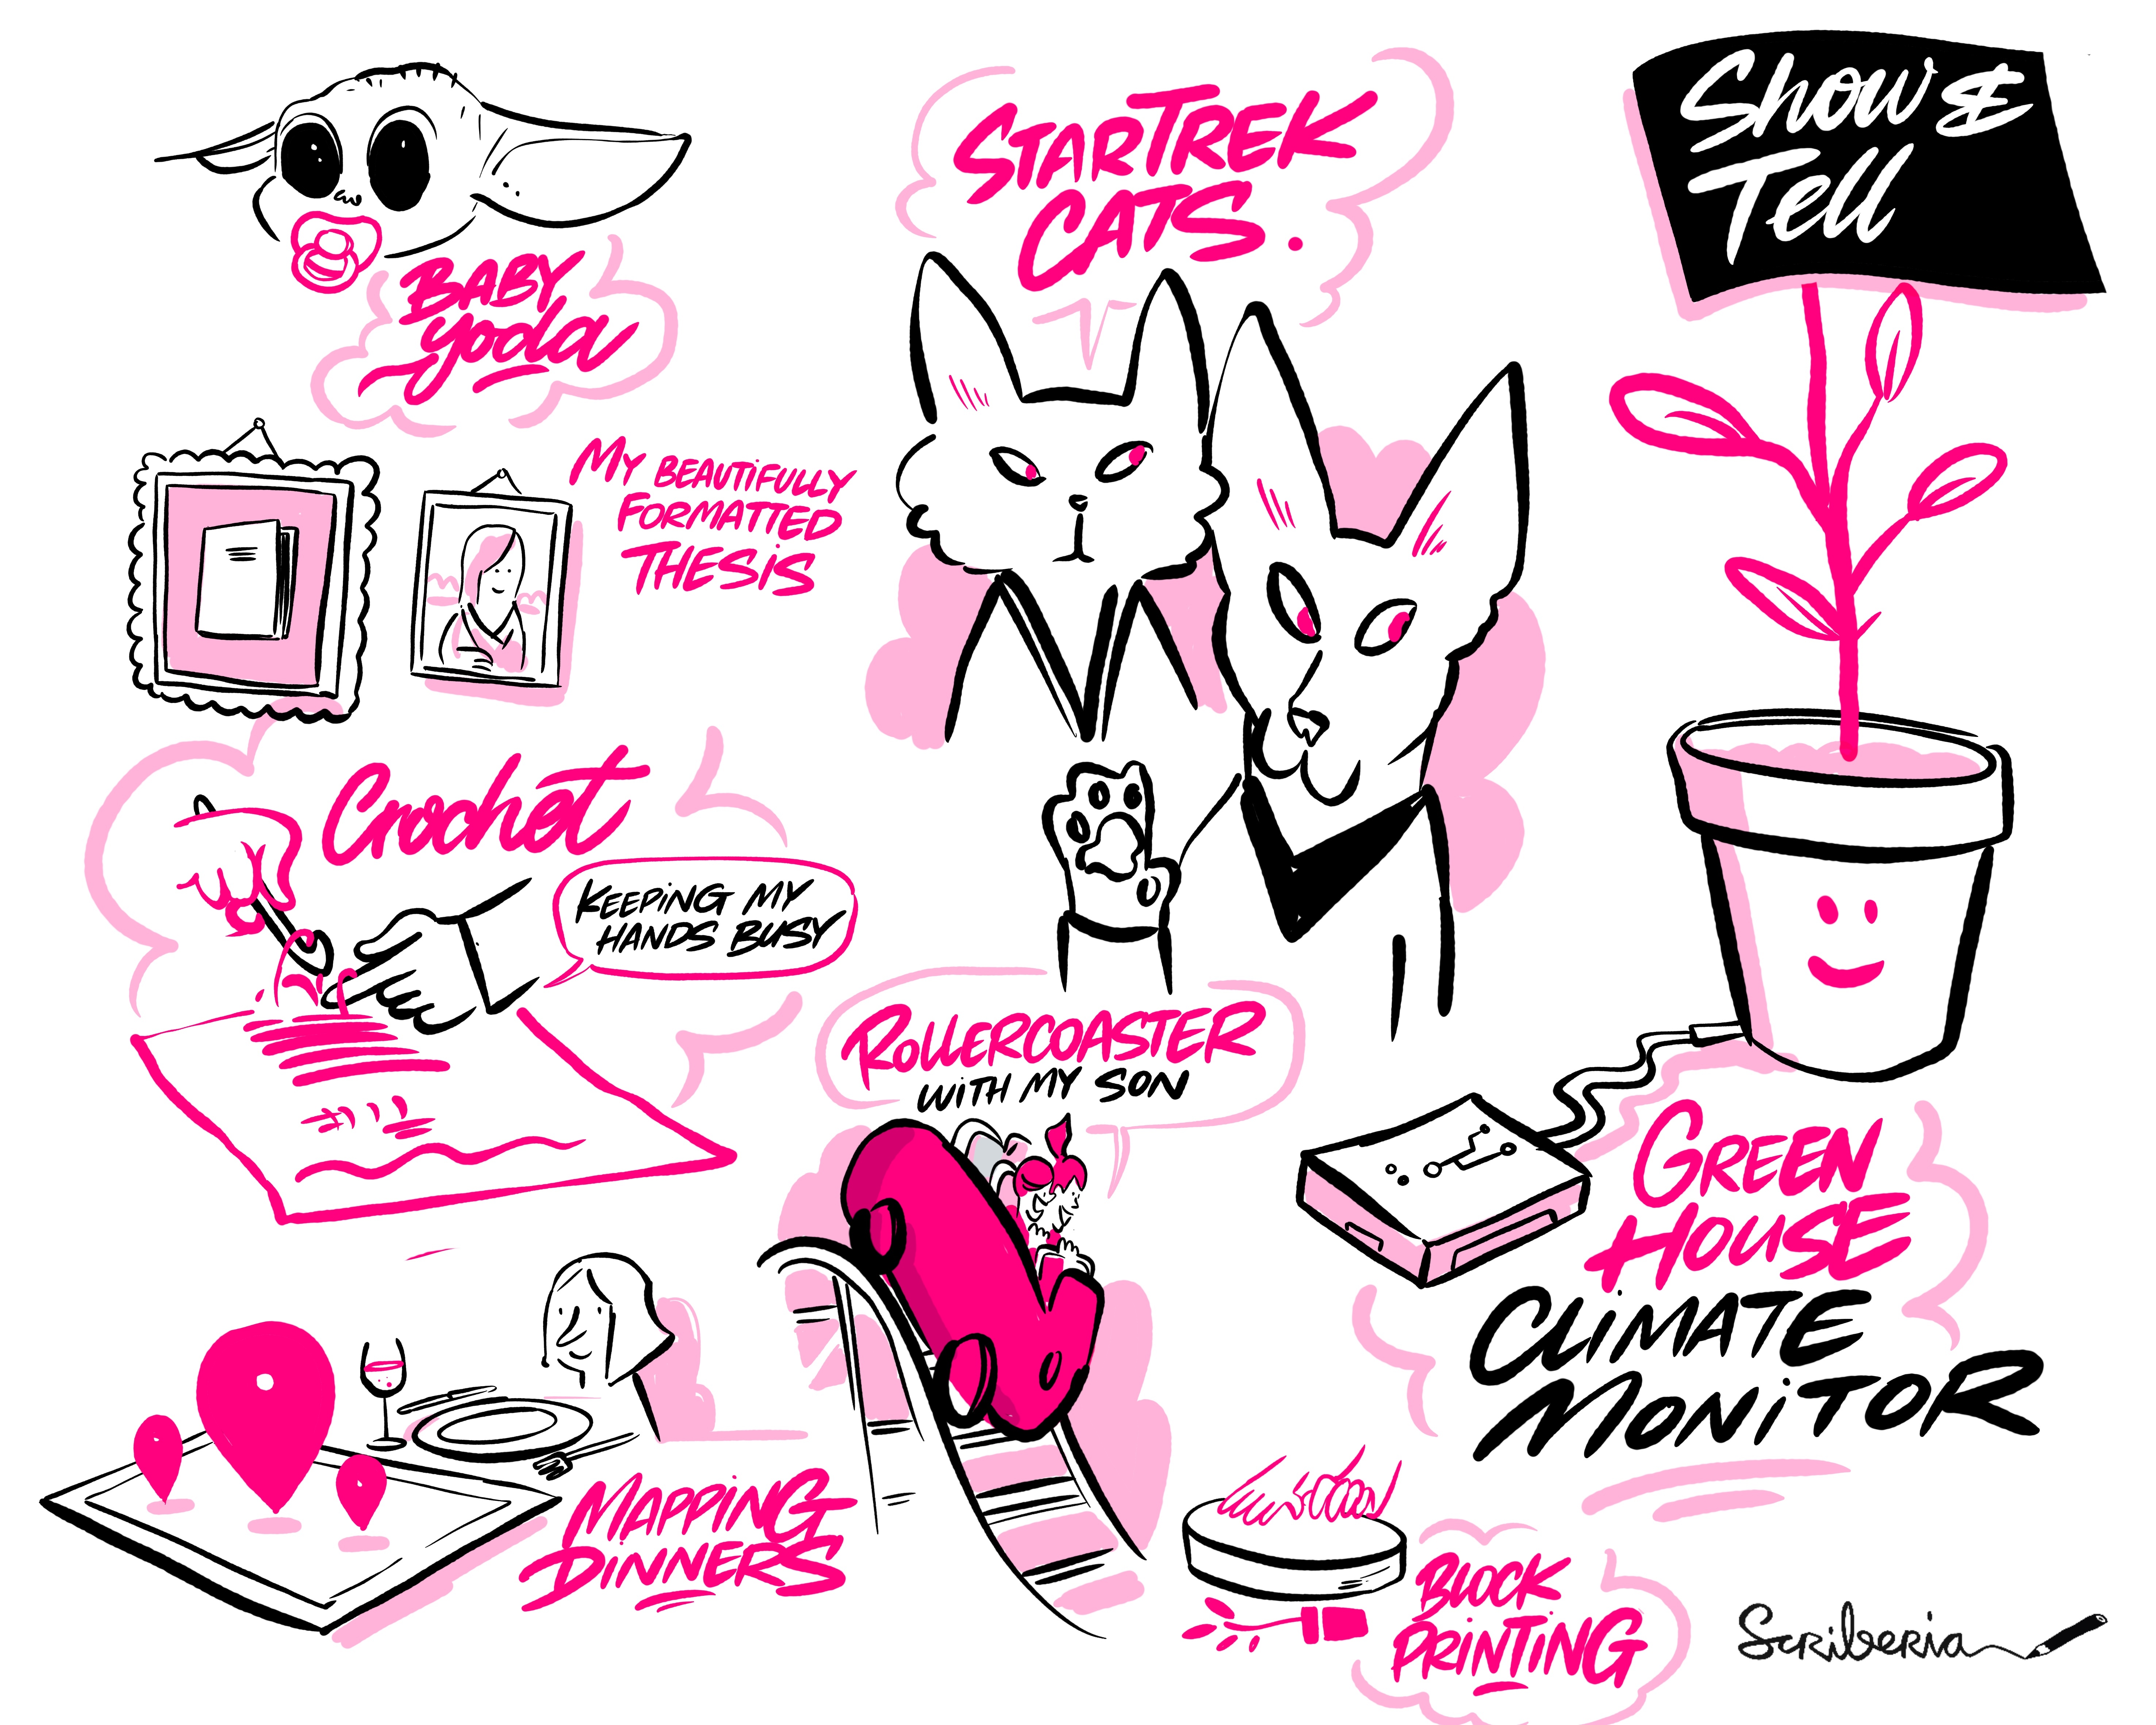 Show &
Tell
STAR TREK
CATS.
BABY
yoda
MY BEAUTIFULLY
FORMATTED
THESIS
Crochet
KEEPING MY
HANDS BUSY
ROLLERCOASTER
WITH MY SON
GREEN
HOUSE
CLIMATE
MONITOR
MAPPING
DINNERS
BLOCK
PRINTING
Scriberia